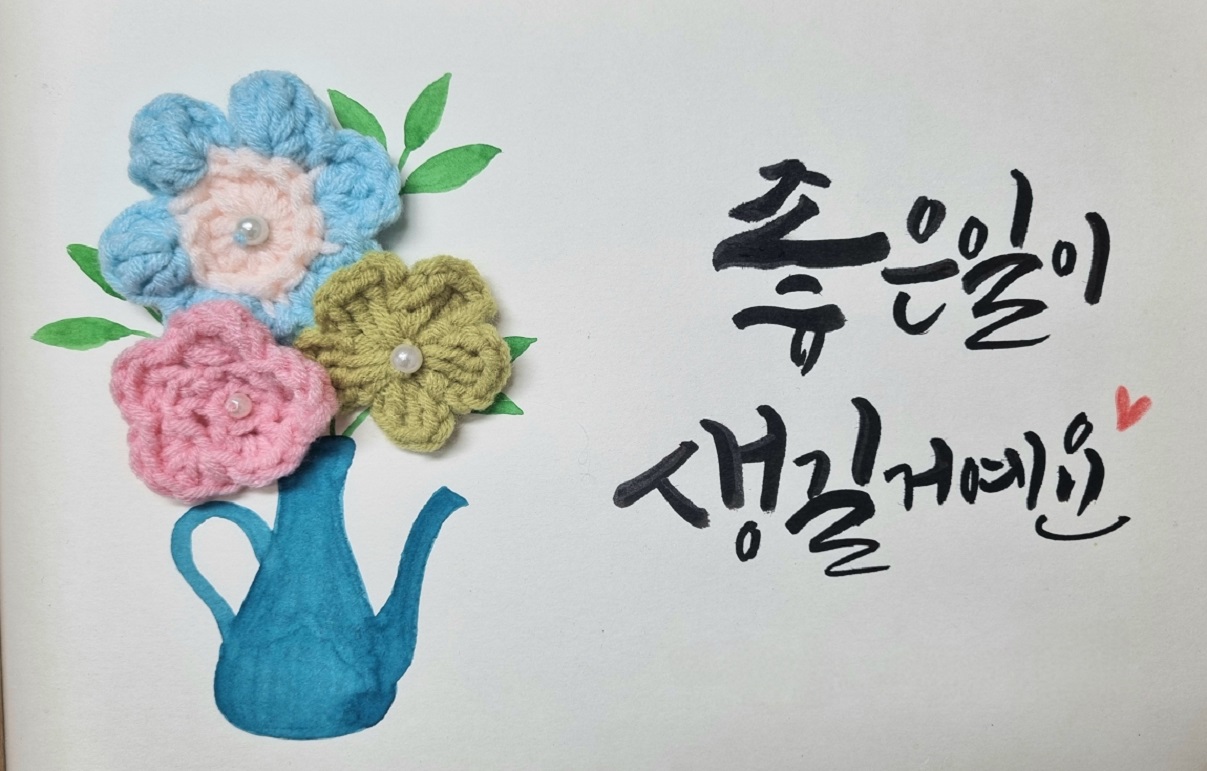 좋은일이
생길거예요